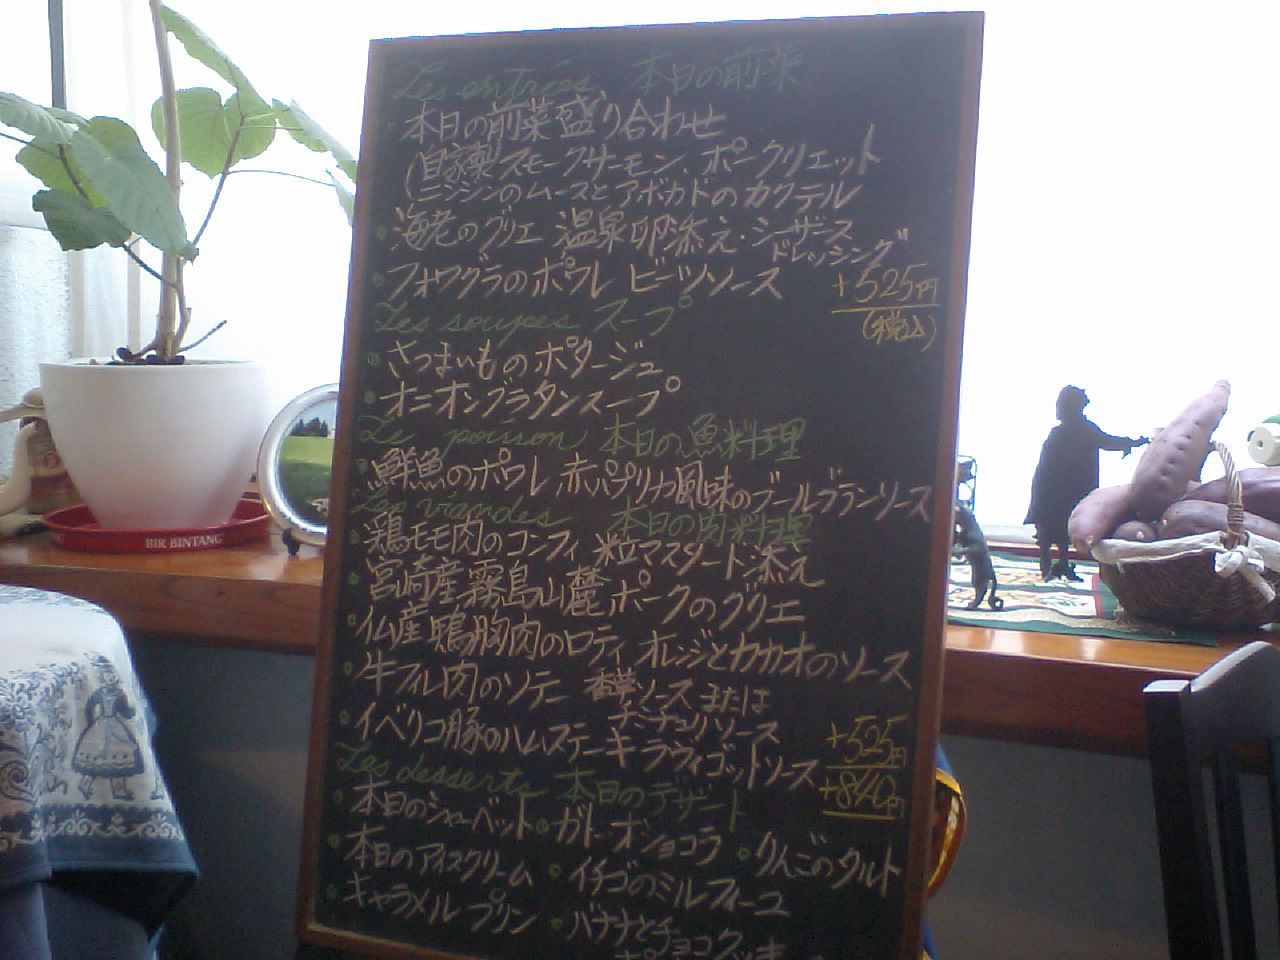 Les entrées 本日の前菜
本日の前菜盛り合わせ
(自家製スモークサーモン、ポークリエット
ニンジンのムースとアボカドのカクテル
海老のグリエ 温泉卵添え・シーザース
ドレッシング
フォワグラのポワレ ビーツソース +525円
(税込)
Les soupes スープ
さつまいものポタージュ
オニオングラタンスープ
Le poisson 本日の魚料理
鮮魚のポワレ 赤パプリカ風味のブールブランソース
Les viandes 本日の肉料理
鶏モモ肉のコンフィ 粒マスタード添え
宮崎産霧島山麓ポークのグリエ
仏産鴨胸肉のロティ オレンジとカカオのソース
牛フィレ肉のソテー 香草ソースまたは
ソース +525円
イベリコ豚のハムステーキ ラヴィゴットソース +840円
Les desserts 本日のデザート
本日のシャーベット ガトーオショコラ りんごのタルト
本日のアイスクリーム イチゴのミルフィーユ
キャラメルプリン バナナとチョコ
BIR BINTANG